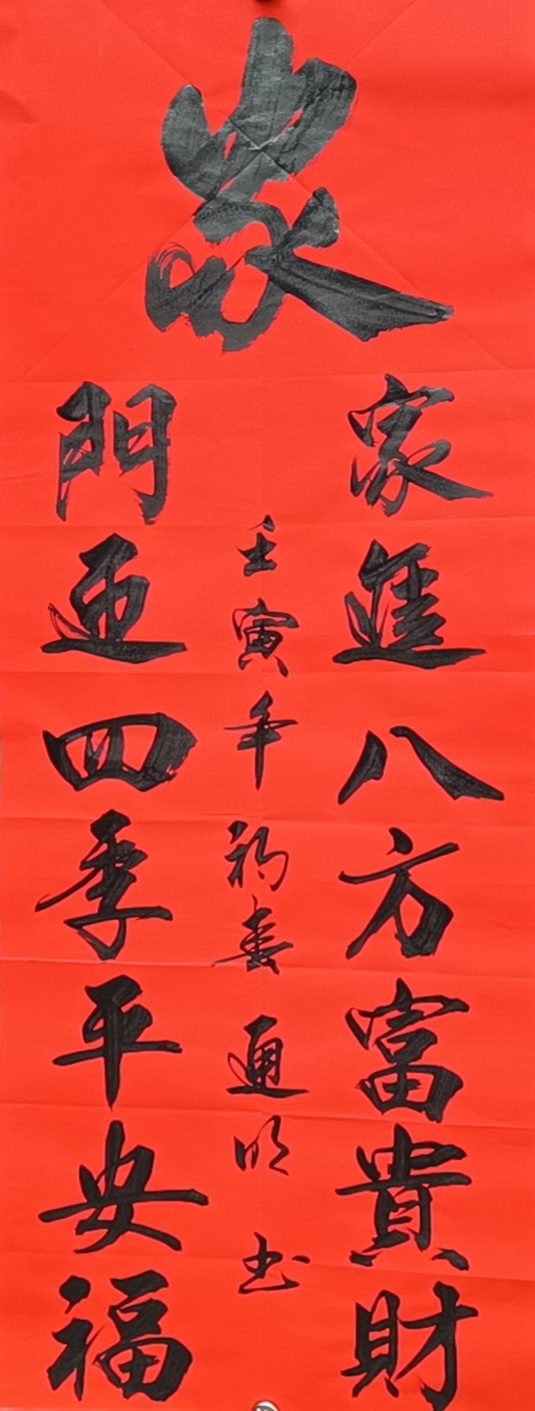 家
家進八方富貴財
門迎四季平安福
壬寅年初春通明书